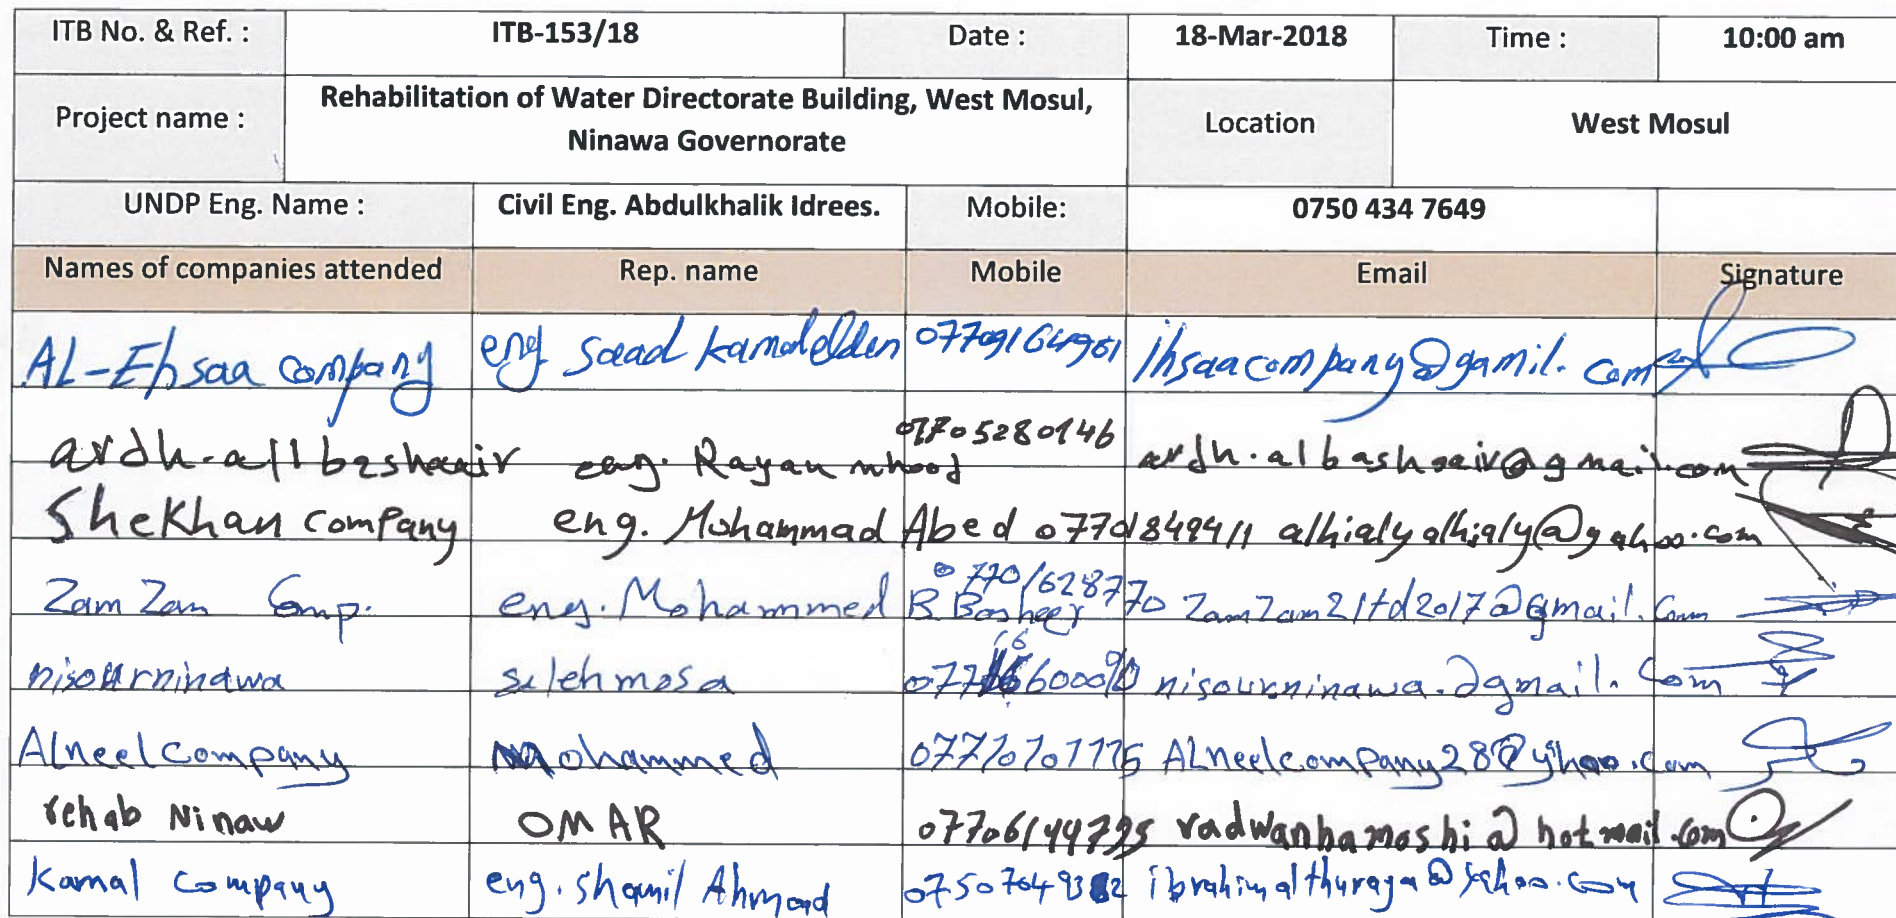 ITB No. & Ref. : ITB-153/18 Date : 18-Mar-2018 Time : 10:00 am
Project name : Rehabilitation of Water Directorate Building, West Mosul, Ninawa Governorate Location West Mosul
UNDP Eng. Name : Civil Eng. Abdulkhalik Idrees. Mobile: 0750 434 7649
Names of companies attended Rep. name Mobile Email Signature
AL-Ehsaa company eng saad kamalelden Ihsaacompany@gamil.com
ardh.all bashaair eng. Rayan 07705280146 ardh.albashaair@gmail.com
Shekhan company eng. Mohammad Abed 0770184941 alhialyalhialy@yahoo.com
Zam Zam Comp. eng. Mohammed B. Basheer 07701628770 zamzam21td2017@gmail.com
nisourninawa salehmosa nisourninawa.@gmail.com
ALneelcompany Mohammed 07710707775 ALneelcompany28@yahoo.com
rehab Ninaw OMAR 07706144795 radwanhamoshi@hotmail.com
Kamal company eng. Shamil Ahmad ibrahimalthuraya@yahoo.com